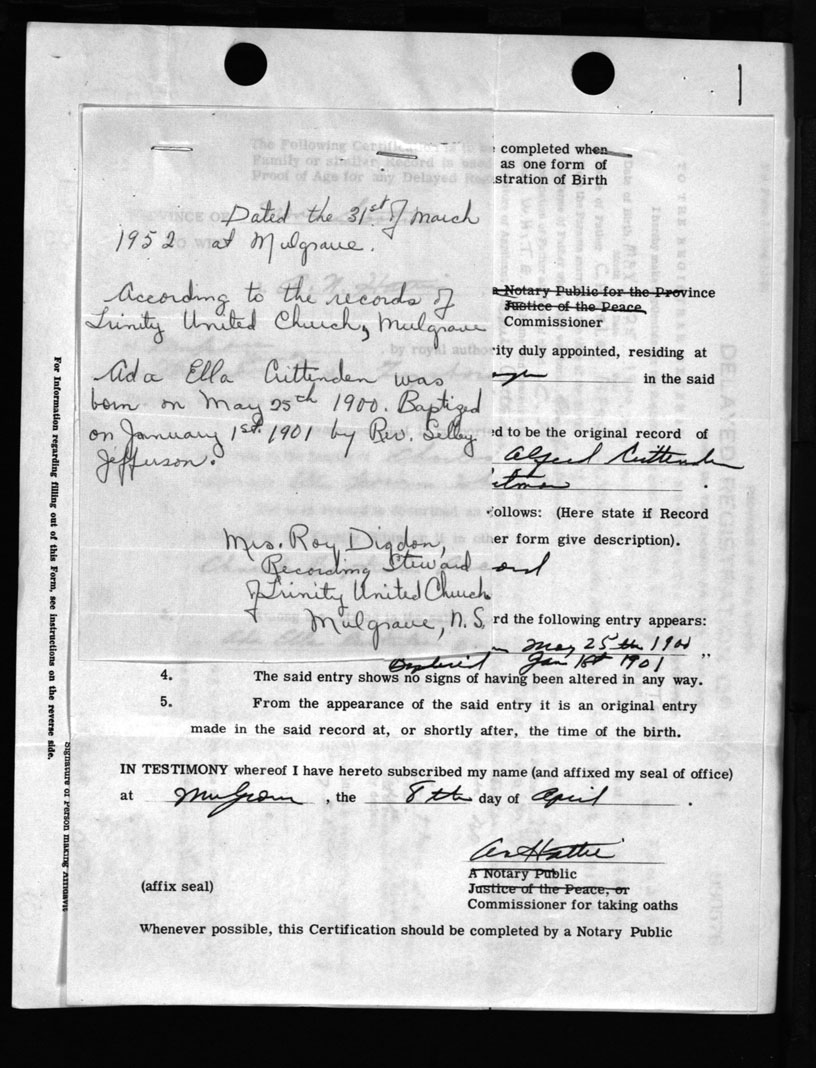 The Following Certification is to be completed when
Family or similar Record is used as one form of
Proof of Age for any Delayed Registration of Birth
Dated the 31st of March
1952 at Mulgrave.
According to the records of
Trinity United Church, Mulgrave
Ada Ella Crittenden was
born on May 25th 1900. Baptized
on January 1st. 1901 by Rev. Selley
Jefferson.
Mrs. Roy Digdon,
Recording Steward
of Trinity United Church
Mulgrave, N.S.
a Notary Public for the Province
Justice of the Peace
Commissioner
, by royal authority duly appointed, residing at
in the said
ed to be the original record of
Alfred Crittenden
follows: (Here state if Record
er form give description).
rd the following entry appears:
May 25th 1900
Jan 1st 1901 "
4. The said entry shows no signs of having been altered in any way.
5. From the appearance of the said entry it is an original entry
made in the said record at, or shortly after, the time of the birth.
IN TESTIMONY whereof I have hereto subscribed my name (and affixed my seal of office)
at Mulgrave, the 8th day of April.
A Notary Public
(affix seal) Justice of the Peace, or
Commissioner for taking oaths
Whenever possible, this Certification should be completed by a Notary Public
For Information regarding filling out of this Form, see instructions on the reverse side.
Signature of Person making Affidavit